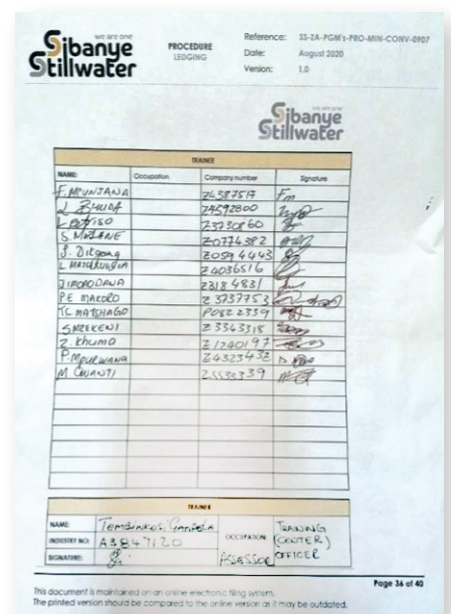 we are one
Sibanye
Stillwater
PROCEDURE
LEDGING
Reference: SS-2A-PGM's-PRO-MIN-CONV-0907
Date: August 2020
Version: 1.0
we are one
Sibanye
Stillwater
TRAINEE
NAME: Occupation Company number Signature
F. MPUNJANA Z4387517 Fm
L Z4592800
Z3730860
S. Z0774382
S. Ditgang Z0594443
L Z4036516
Z3184831
PE MAKORO Z3737753
TC MATSHAGO P0822339
S MZEKENI Z3343318
Z. Khumo Z1240197
P. Z4323432
M Z5533339
TRAINER
NAME: Tembinkosi
INDUSTRY NO: A3847120
OCCUPATION: TRAINING (CENTER) OFFICER
SIGNATURE: ASSESSOR
This document is maintained on an online electronic filing system.
The printed version should be compared to the online version as it may be outdated.
Page 36 of 40